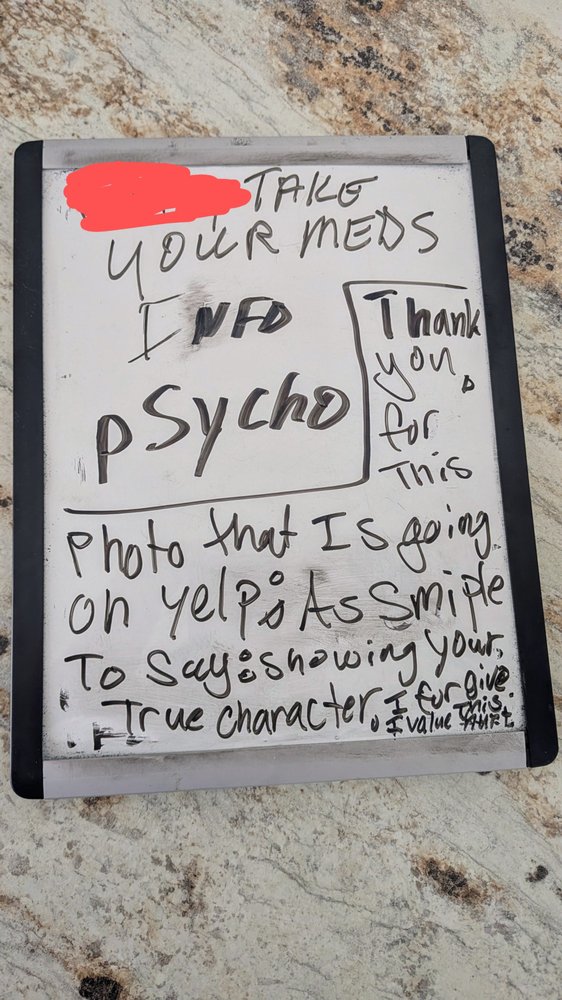 TAKE
YOUR MEDS
INFO
pSycho
Thank
you,
for
This
Photo that Is going
on Yelp: As Smiple
To Say: showing your,
True character, I forgive
This.
I value